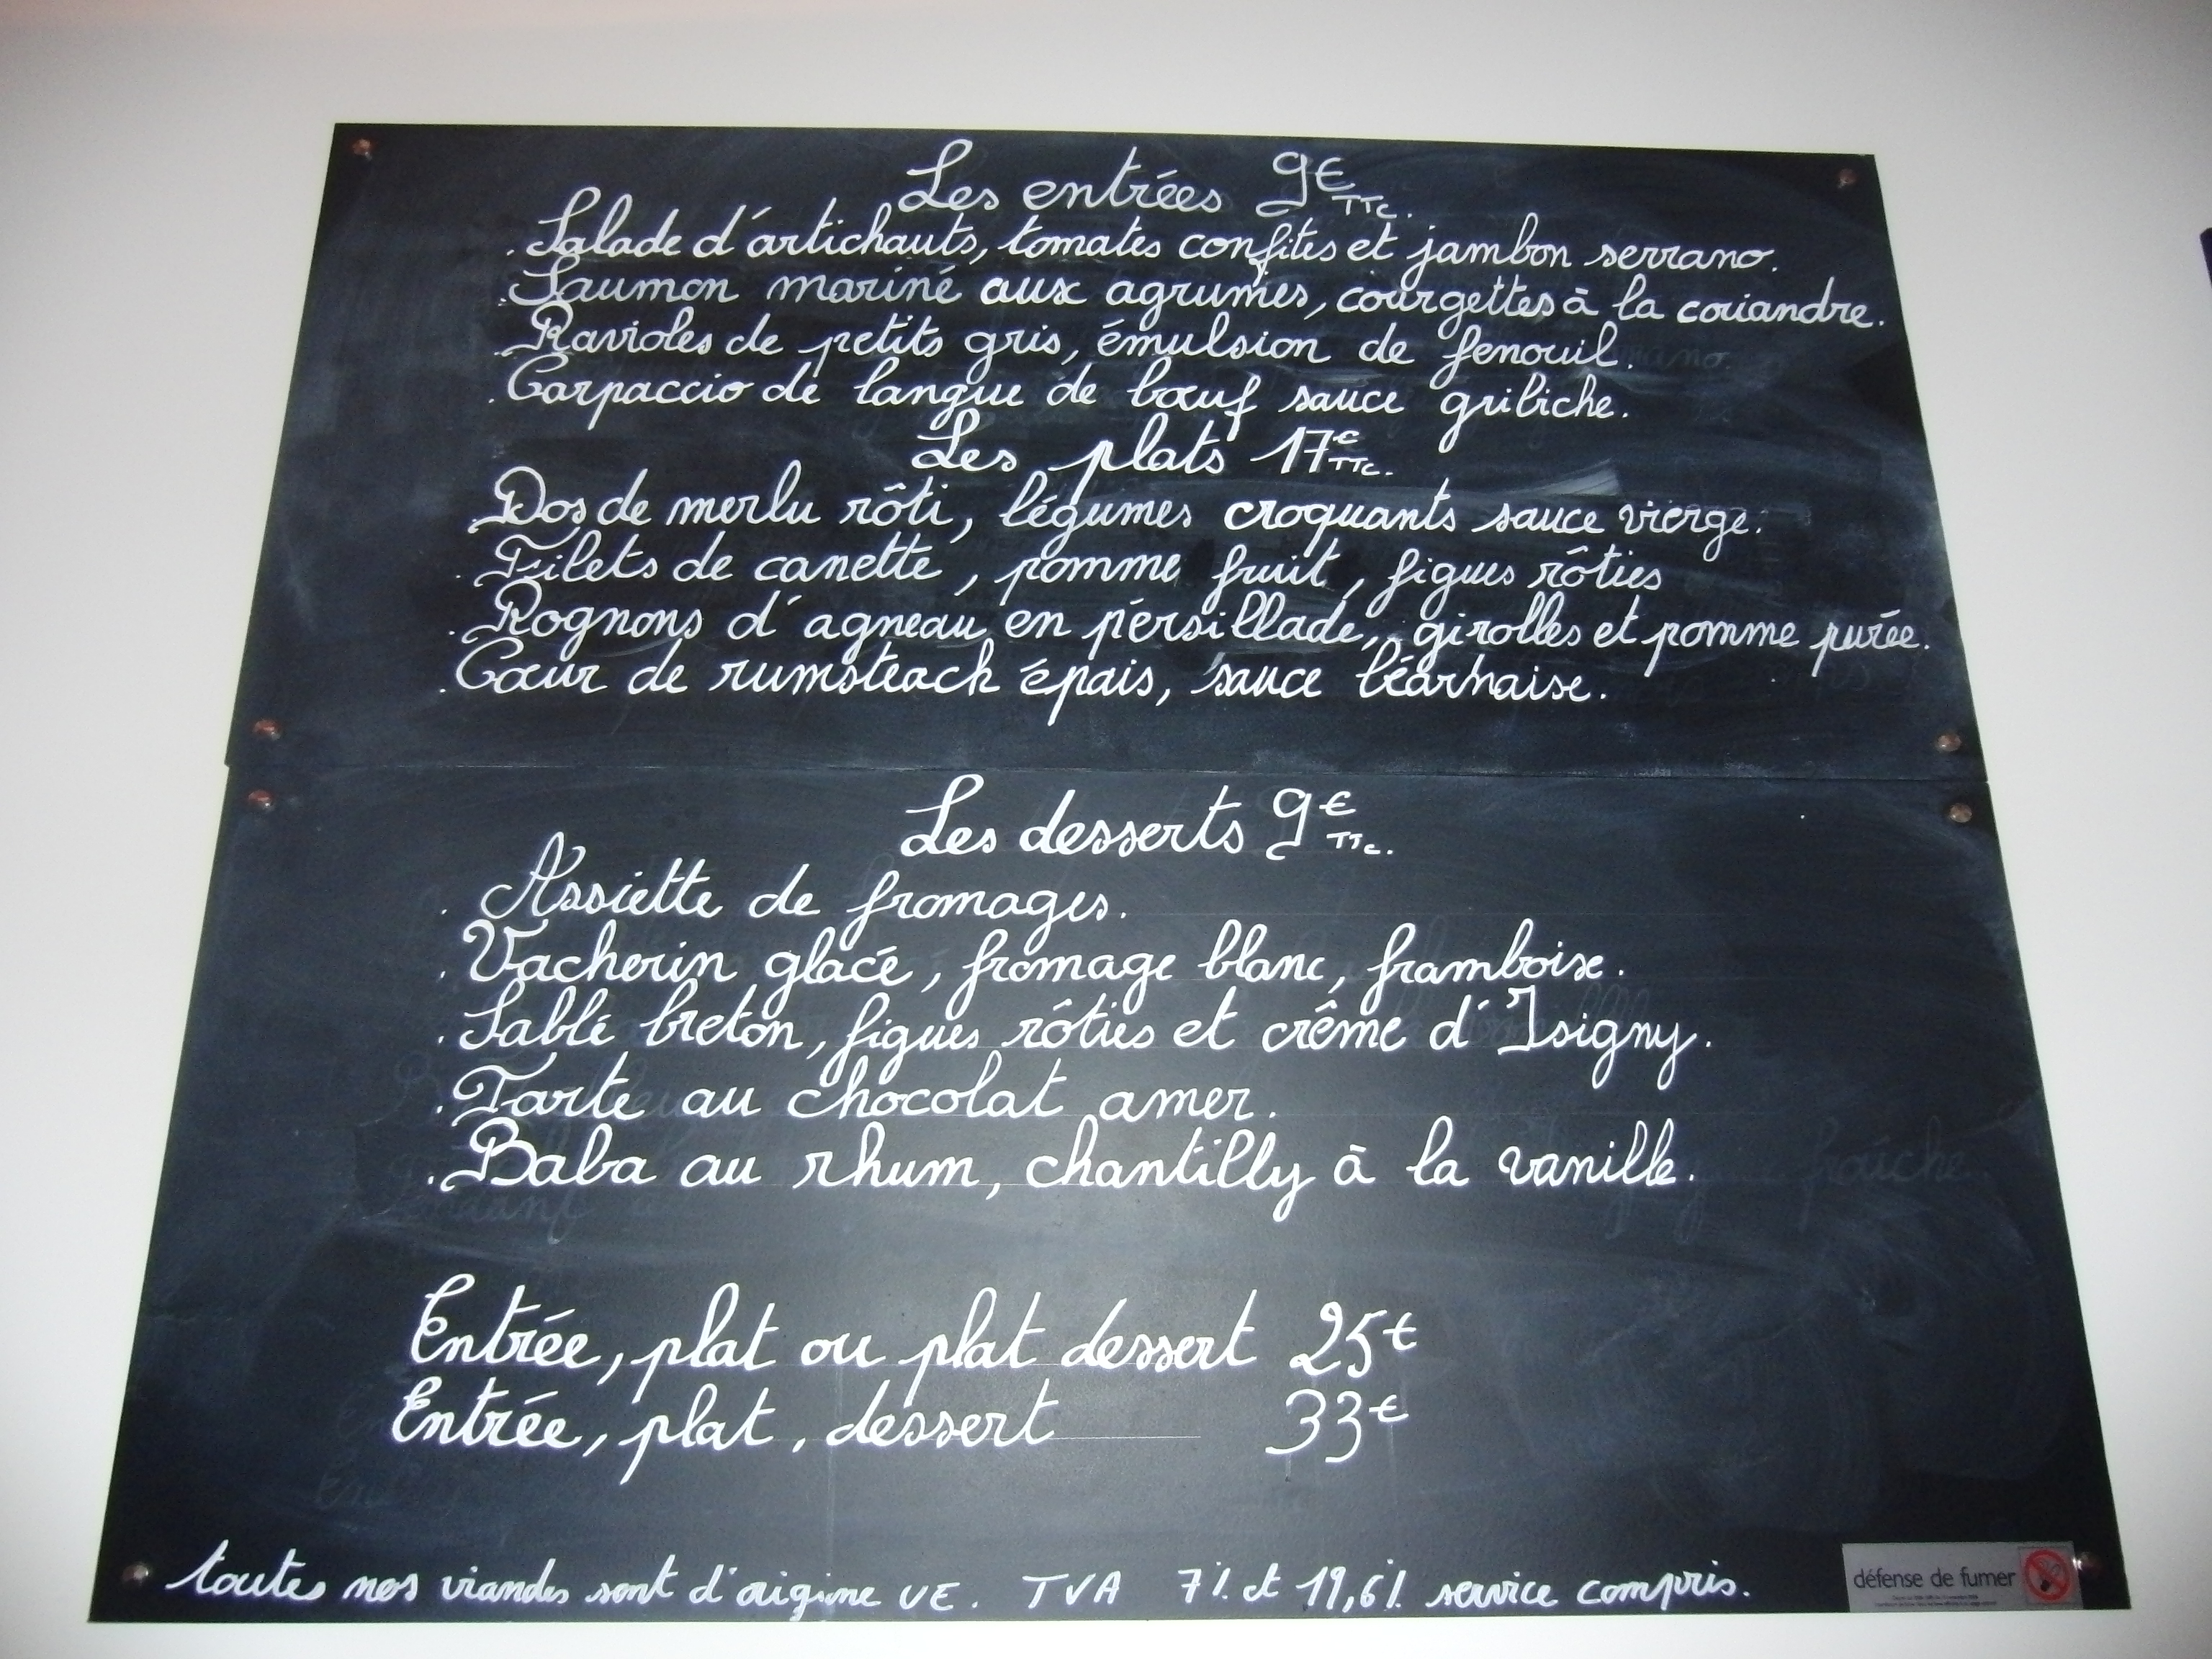 Les entrées 9€ TTC.
. Salade d'artichauts, tomates confites et jambon serrano.
. Saumon mariné aux agrumes, courgettes à la coriandre.
. Ravioles de petits gris, émulsion de fenouil.
. Carpaccio de langue de bœuf sauce gribiche.
Les plats 17€ TTC.
. Dos de merlu rôti, légumes croquants sauce vierge.
. Filets de canette, pomme fruit, figues rôties
. Rognons d'agneau en persillade, girolles et pomme purée.
. Cœur de rumsteack épais, sauce béarnaise.
Les desserts 9€ TTC.
. Assiette de fromages.
. Vacherin glacé, fromage blanc, framboise.
. Sablé breton, figues rôties et crême d'Isigny.
. Tarte au chocolat amer.
. Baba au rhum, chantilly à la vanille.
Entrée, plat ou plat dessert 25€
Entrée, plat, dessert 33€
toutes nos viandes sont d'origine UE. TVA 7% et 19,6% service compris.
défense de fumer